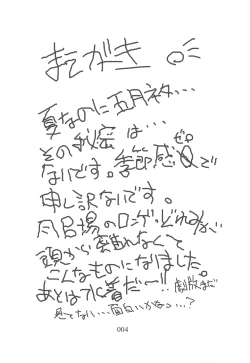 まえがき
夏なのに五月ネタ…
その秘密は…
ないです。季節感0で
ゼロ
申し訳ないです。
風呂場のロング・どれみが
頭から離れなくて
こんなものになりました。
あとは水着だー!! 劇散まだ
見てない…面白いかなっ…?
004